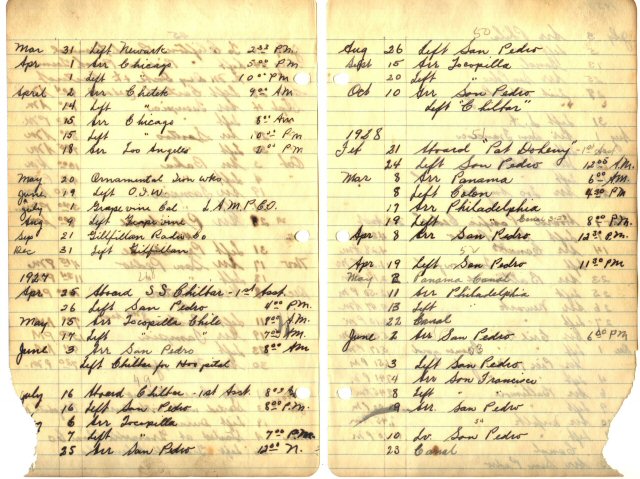 Mar 31 Left Newark 2:30 P.M.
Apr 1 Arr Chicago 5:00 P.M.
1 Left " 10:00 P.M
April 2 Arr 9:00 A.M.
14 Left "
15 Arr Chicago 8:00 A.M
15 Left " 10:00 P.M
18 Arr Los Angeles 2:00 P.M.
May 20 Ornamental Iron Wks
June 19 Left O.I.W.
July 1 Grapevine Cal - L.A.M.P.CO.
Aug 9 Left Grapevine
Sep 21 Gilfillan Radio Co
Dec 31 Left Gilfillan
1927
Apr 25 Aboard S.S. Chilbar - 1st Asst.
26 Left San Pedro 4:00 P.M.
May 15 Arr Tocopilla Chile A.M
17 Left " 7:00 A.M
June 3 Arr San Pedro 8:00 A.M
Left Chilbar for Hospital
July 16 Aboard Chilbar - 1st Asst.
16 Left San Pedro 8:00 P.M.
6 Arr Tocopilla
7 Left " 7:00 P.M.
25 Arr San Pedro 12:00 N.
50
Aug 26 Left San Pedro
Sept 15 Arr Tocopilla
20 Left "
Oct 10 Arr San Pedro
Left "Chilbar"
1928
Feb 21 Aboard "Pat Doheny" 1st Asst
24 Left San Pedro 12:05 A.M.
Mar 8 Arr Panama 6:00 A.M.
8 Left Colon 4:30 P.M
17 Arr Philadelphia
19 Left 8:00 P.M.
Apr 8 Arr San Pedro 12:30 P.M.
Apr 19 Left San Pedro 11:30 P.M
May 2 Panama Canal
11 Arr Philadelphia
13 Left
22 Canal
June 2 Arr San Pedro 6:00 P.M
53
3 Left San Pedro
4 Arr San Francisco
8 Left "
9 Arr. San Pedro
54
10 Lv. San Pedro
23 Canal